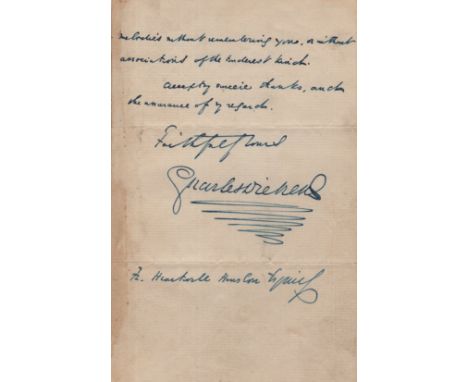 melodies without remembering you, or without
associations of the kindest kind.
Accept my sincere thanks, and
the assurance of my regard.
Faithfully Yours
Charles Dickens
F.